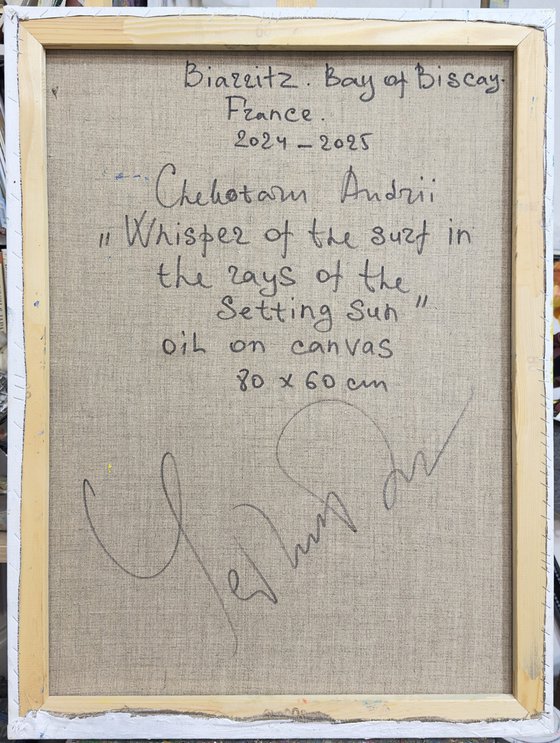 Biarritz. Bay of Biscay.
France.
2024 - 2025
Chekotarn Andrii
„Whisper of the surf in
the rays of the
Setting Sun”
oil on canvas
80 x 60 cm